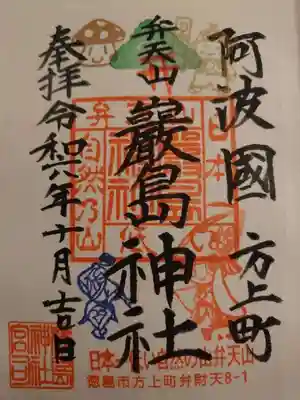 阿波國 方上町
弁天山
巖島神社
奉拝 令和六年十月吉日
日本
弁
自然乃山
日本一低い自然の山弁天山
徳島市方上町弁財天8-1